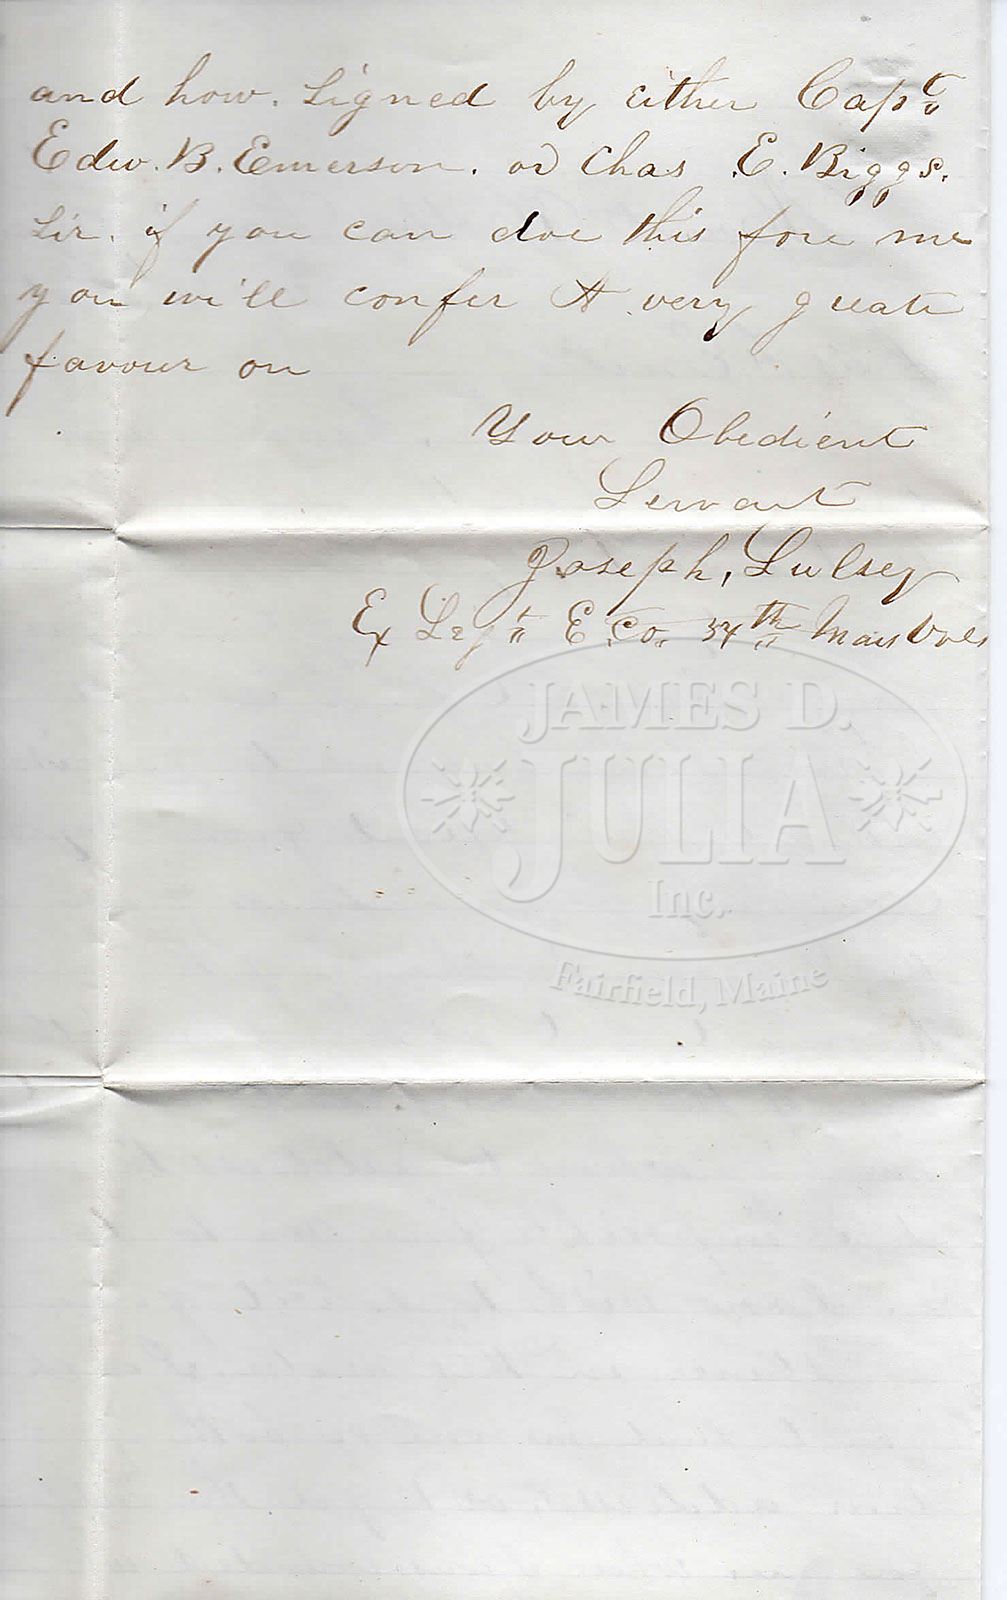 and how. Signed by either Capt
Edw. B. Emerson. or Chas E. Biggs.
Sir. if you can doe this fore me
you will confer A very greate
favour on
Your Obedient
Servant
Joseph, Lulsey
Ex Sergt E. Co. 54th Mass Vols
JAMES D.
JULIA
Inc.
Fairfield, Maine